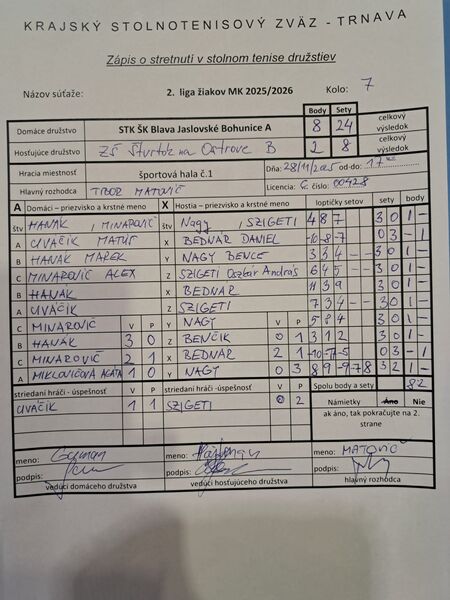 KRAJSKÝ STOLNOTENISOVÝ ZVÄZ - TRNAVA
Zápis o stretnutí v stolnom tenise družstiev
Názov súťaže: 2. liga žiakov MK 2025/2026 Kolo: 7
Body Sety
Domáce družstvo STK ŠK Blava Jaslovské Bohunice A 8 24 celkový výsledok
Hosťujúce družstvo ZŠ Štvrtok na Ostrove B 2 8 celkový výsledok
Hracia miestnosť športová hala č.1 Dňa: 28/11/2025 od-do: 17
Hlavný rozhodca TIBOR MATOVIČ Licencia: C číslo: 00428
A Domáci - priezvisko a krstné meno X Hostia - priezvisko a krstné meno loptičky setov sety body
štv HANÁK, MINAROVIČ štv Nagy, SZIGETI 4 8 7 3 0 1 -
A UVÁČIK MATÚŠ X BEDNÁR DANIEL -10 -8 -7 0 3 - 1
B HANÁK MAREK Y NAGY BENCE 3 3 4 - - 3 0 1 -
C MINAROVIČ ALEX Z SZIGETI András 6 4 5 - - 3 0 1 -
B HANÁK X BEDNÁR 11 3 9 3 0 1 -
A UVÁČIK Z SZIGETI 7 3 4 - - 3 0 1 -
C MINAROVIČ V P Y NAGY V P 5 8 4 3 0 1 -
B HANÁK 3 0 Z BENČIK 0 1 3 1 2 3 0 1 -
C MINAROVIČ 2 1 X BEDNÁR 2 1 -10 -11 -5 0 3 - 1
A MIKLOVIČOVÁ AGÁTA 1 0 Y NAGY 0 3 8 9 -9 -7 8 3 2 1 -
striedaní hráči - úspešnosť V P striedaní hráči - úspešnosť V P Spolu body a sety: 8 2
UVÁČIK 1 1 SZIGETI 0 2 Námietky Áno Nie
ak áno, tak pokračujte na 2. strane
meno: meno: meno: MATOVIČ
podpis: podpis: podpis:
vedúci domáceho družstva vedúci hosťujúceho družstva hlavný rozhodca